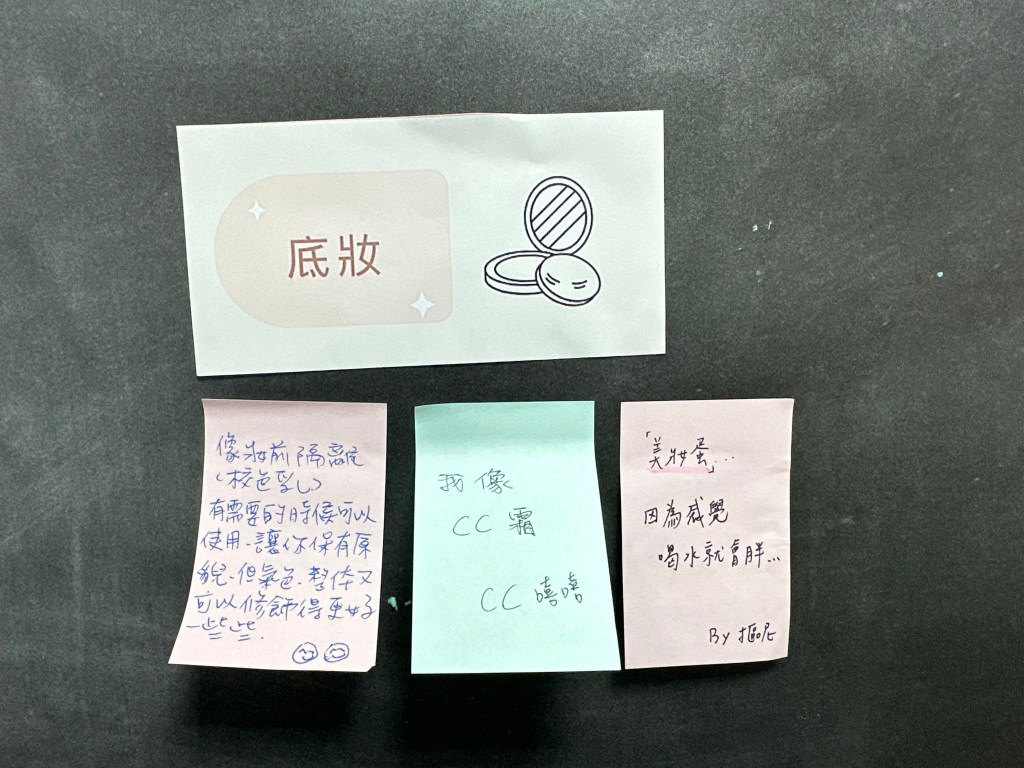 底妝
像妝前隔離
(校色乳)
有需要的時候可以
使用、讓你保有原
貌、但氣色、整体又
可以修飾得更好
一些些.
我像
CC霜
CC嘻嘻
「美妝蛋」...
因為感覺
喝水就會胖...
By 摳尼